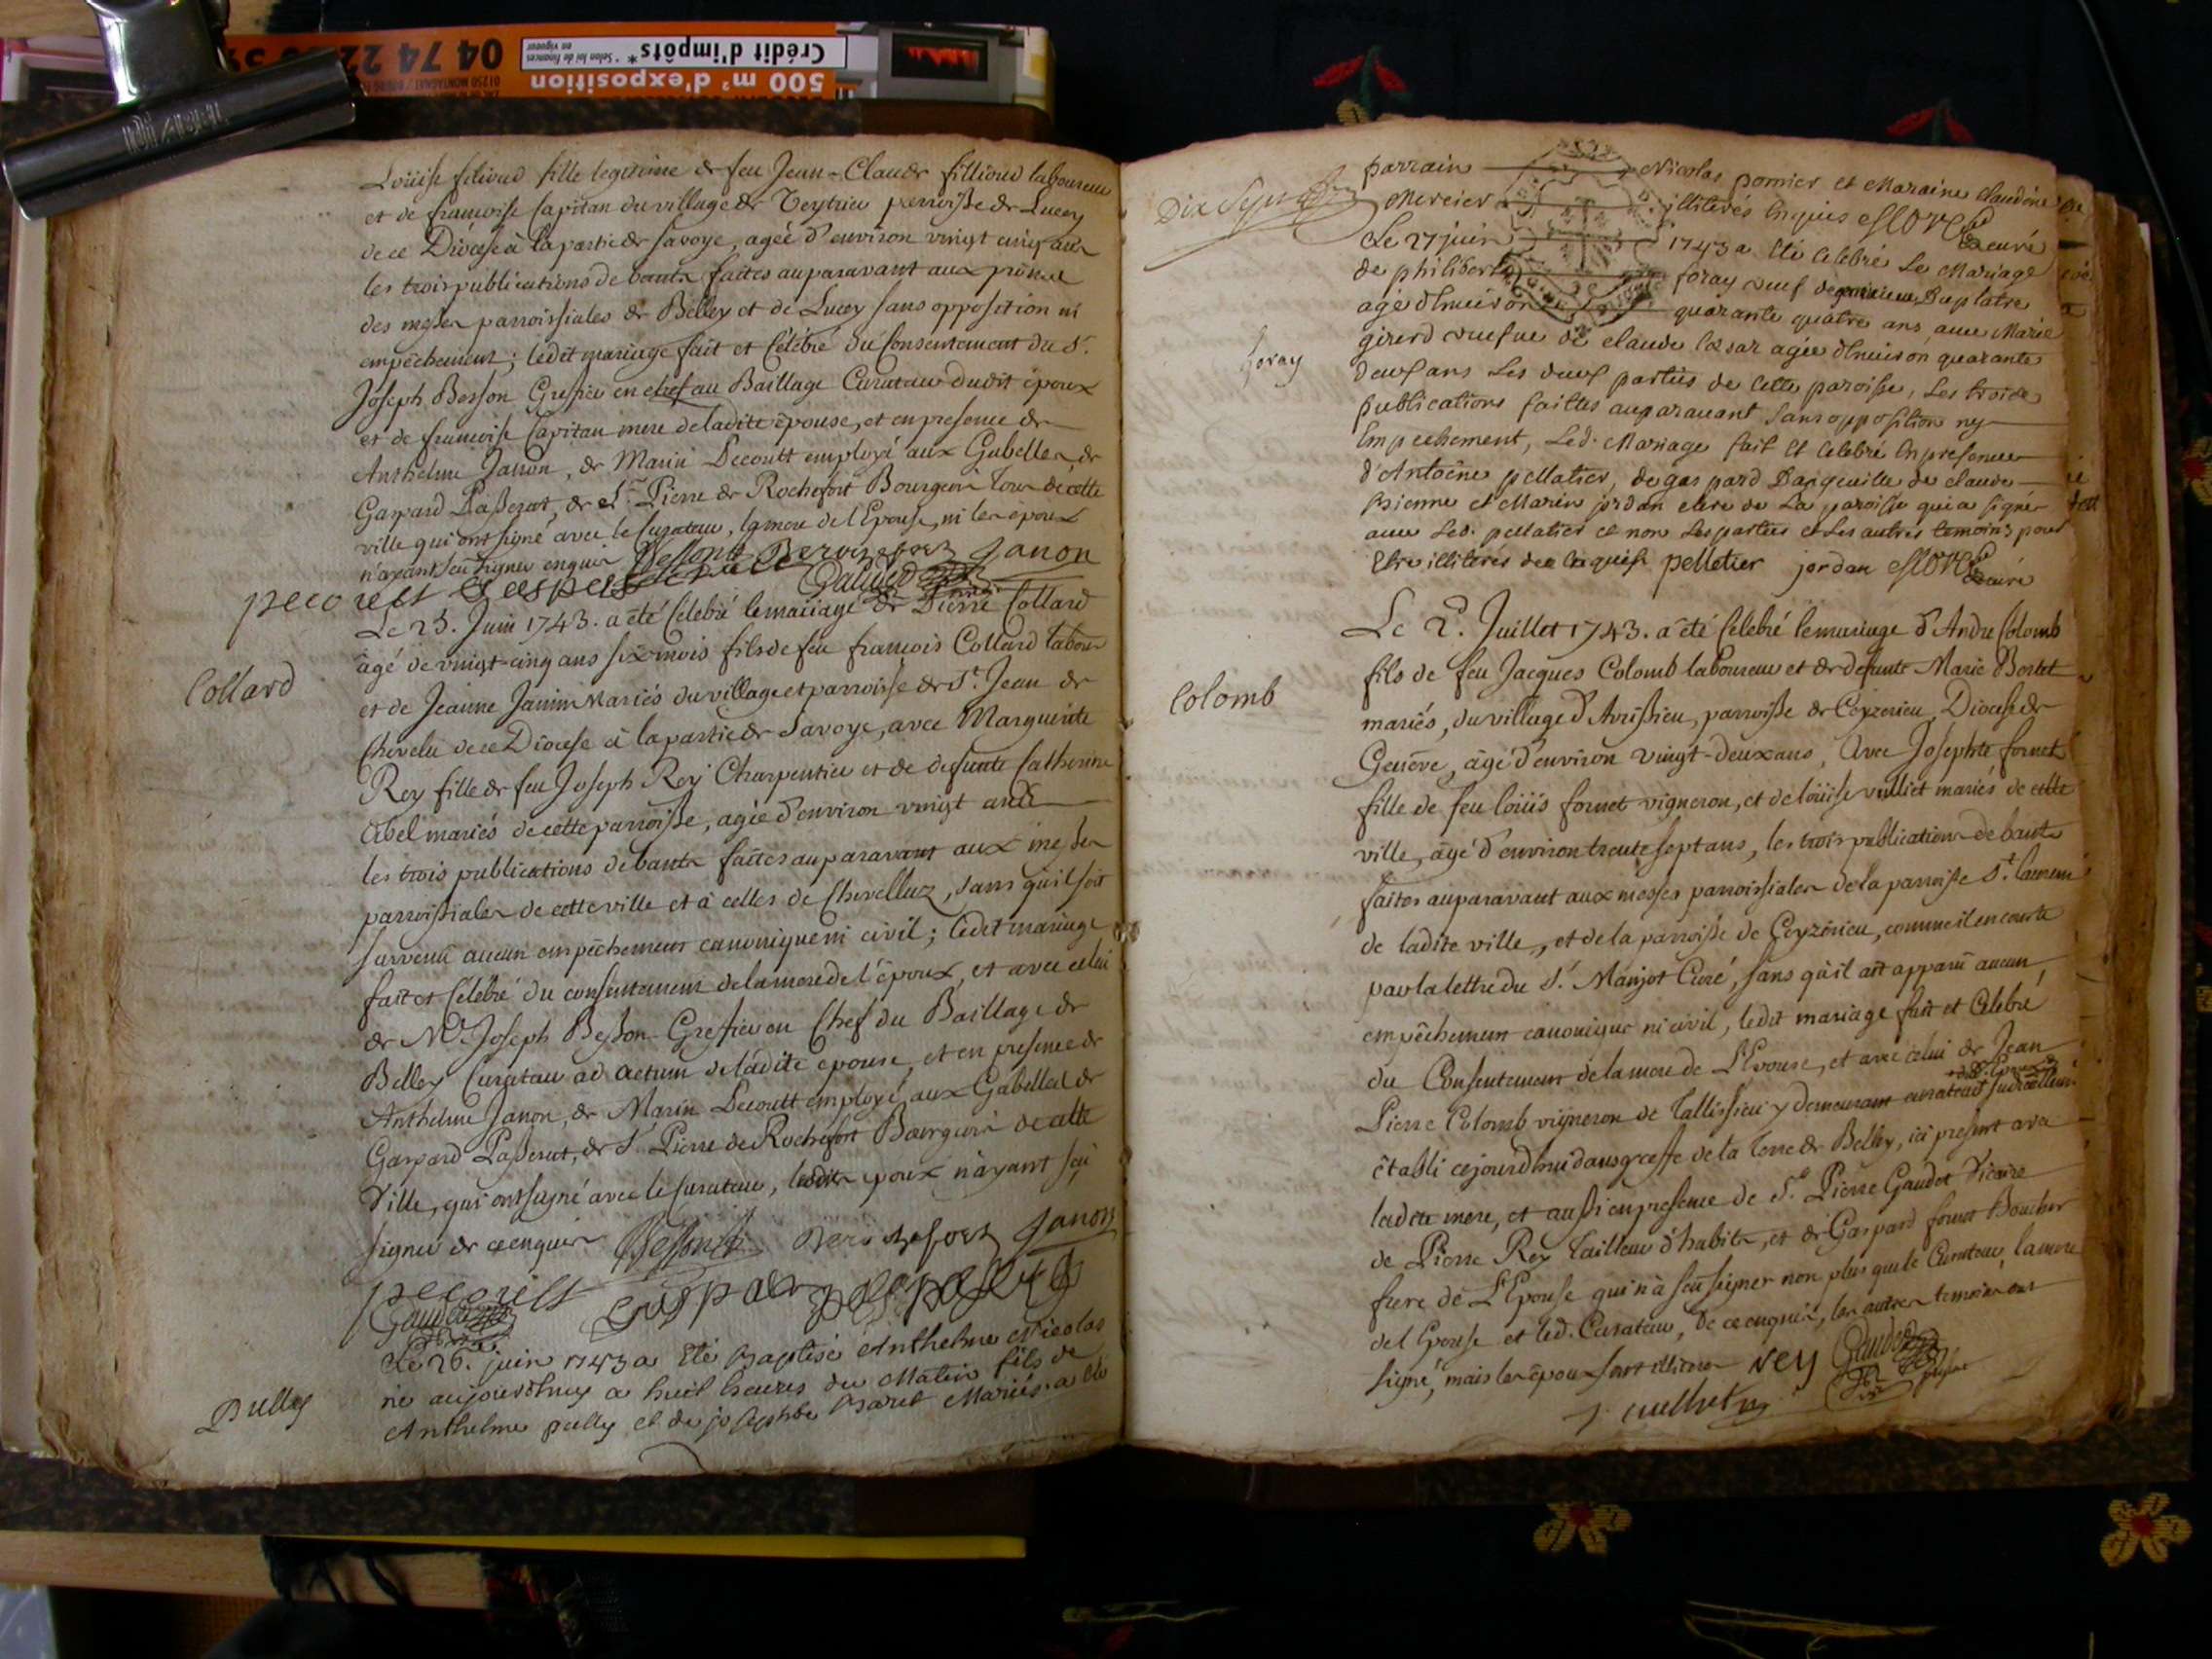 500 m² d'exposition
Crédit d'impôts*
* Selon loi de finances
en vigueur
04 74 22
01250 MONTAGNAT
Loüise filioud fille legitime de feu Jean-Claude fillioud laboureur
et de françoise Capitan du village de Veytrieu parroisse de Lucey
de ce Diocese à la partie de Savoye, agée d'environ vingt cinq ans
les trois publications de bants faites auparavant aux prônes
des messes parroissiales de Belley et de Lucey sans opposition ni
empêchement; ledit mariage fait et Célébré du Consentement du Sr.
Joseph Besson Greffier en chef au Baillage Curateur dudit époux
et de françoise Capitan mere de ladite épouse, et en presence de
Anthelme Janon, de Marin Decoutt employé aux Gabelles, de
Gaspard Passerat, de Sr. Pierre de Rochefort Bourgeois tous de cette
ville qui ont signé avec le Curateur, la mere de l'Epouse, ni les époux
n'ayant sçu signer enquis Besson Derochefort Janon
pecoult gaspard Gaudet
Le 25. Juin 1743. a été Célébré le mariage de Pierre Collard
Collard
âgé de vingt-cinq ans six mois fils de feu françois Collard labour
et de Jeanne Janin Mariés du village et parroisse de St. Jean de
Chevelu de ce Diocese à la partie de Savoye, avec Marguerite
Rey fille de feu Joseph Rey Charpentier et de defunte Catherine
Abel mariés de cette parroisse, agée d'environ vingt ans
les trois publications de bants faites auparavant aux messes
parroissiales de cette ville et à celles de Chevelluz, sans qu'il soit
survenu aucun empêchement canonique ni civil; ledit mariage
fait et Célébré du consentement de la mere de l'époux, et avec celui
de Me. Joseph Besson Greffier en Chef du Baillage de
Belley Curateur ad actum de ladite épouse, et en presence de
Anthelme Janon, de Marin Decoutt employé aux Gabelles de
Gaspard Passerat, de Sr. Pierre de Rochefort Bourgeois de cette
Ville, qui ont signé avec le Curateur, lesdits époux n'ayant sçu
signer de ce enquis Besson Derochefort Janon
pecoult gaspard paserat
Gaudet
Le 26. juin 1743 a été baptisé Anthelme Nicolas
Pulley
né aujourdhuy a huit heures du Matin fils de
Anthelme pully et de josephte Maret Mariés. a été
parrain Nicolas pomier et Maraine Claudine
Dix Sept
Mercier illiterés Enquis curé
Le 27 juin 1743 a été Celebré Le Mariage
de philibert foray veuf de Duplatre
foray
agé d'Environ quarante quatre ans avec Marie
girerd veufve de claude agée d'Environ quarante
deux ans Les deux parties de cette paroisse, Les trois
publications faittes auparauant sans opposition ny
Empechement, Led. Mariage fait Et Celebré En presence
d'Antoine pellatier, de gaspard Dangeville de claude
et Marin jordan clerc de La paroisse qui a signé
avec Led. pellatier et non Les parties et Les autres temoins pour
Etre illiterés de ce Enquis pelletier jordan curé
Le 2. Juillet 1743. a été Célébré le mariage d'André Colomb
Colomb
fils de feu Jacques Colomb laboureur et de defunte Marie Bertet
mariés, du village d'Avrissieu, parroisse de Ceyzerieu, Diocese de
Genève, âgé d'environ vingt-deux ans, Avec Josephte fornet
fille de feu loüis fornet vigneron, et de loüise vulliet mariés de cette
ville, âgé d'environ trente sept ans, les trois publications de bants
faites auparavant aux messes parroissiales de la parroisse St. laurent
de ladite ville, et de la parroisse de Ceyzérieu, comme il en conste
par la lettre du Sr. Manjot Curé, sans qu'il ait apparû aucun
empêchement canonique ni civil, ledit mariage fait et Celebré
du Consentement de la mere de L'Epouse, et avec celui de Jean
Pierre Colomb vigneron de Tallissieu y demeurant curateur
établi ce jourdhui dans greffe de la Terre de Belley, ici present avec
ladite mere, et aussi en presence de Sr. Pierre Gaudet Vicaire
de Pierre Rey Tailleur d'habits, et de Gaspard fornet Boucher
frere de L'Epouse qui n'a sçu signer non plus que le Curateur, la mere
de l'Epouse et led. Curateur, de ce enquis, les autres temoins ont
signé, mais les époux sont illiterés Rey Gaudet